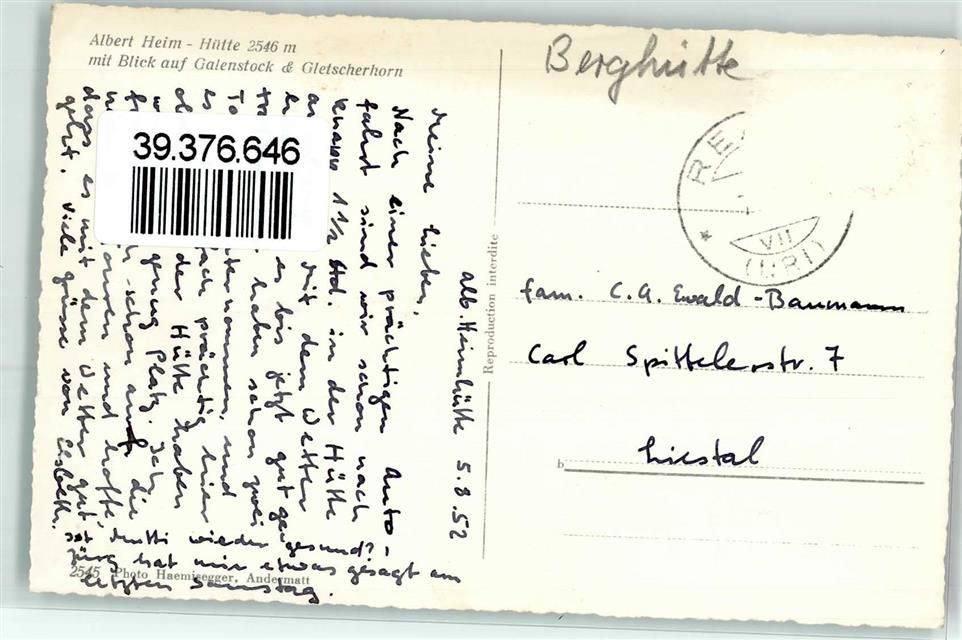 Albert Heim - Hütte 2546 m
mit Blick auf Galenstock & Gletscherhorn
Berghütte
39.376.646
Alb. Heimhütte 5.8.52
Meine Lieben,
Nach einer prächtigen Auto-
fahrt sind wir schon nach
knapp 1 1/2 Std. in der Hütte
mit dem Wetter
es bis jetzt gut ge
haben schon zwei
ternommen, und
fach prächtig hier
der Hütte haben
genug Platz. Ich
schon auf die
ouren und hoffe,
dass es mit dem Wetter gut
geht. Viele Grüsse von Elsbeth.
Ist Mutti wieder gesund?
Jürg hat mir etwas gesagt am
letzten Samstag.
2545 Photo Haemisegger, Andermatt
Reproduction interdite
RE
VII
(URI)
Fam. C. A. Ewald-Baumann
Carl Spittelerstr. 7
Liestal